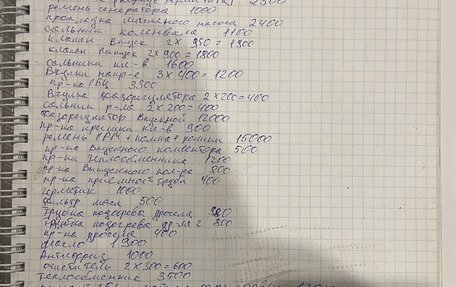 2500
ремень генератора 1000
прокладка масляного насоса 2400
сальник коленвала 1100
клапан впуск 2 х 950 = 1800
клапан выпуск 2 х 900 = 1800
сальники кл-в 1600
Втулки напр-е 3 х 400 = 1200
пр-ка ГБЦ 3300
Втулка фазорегулятора 2 х 200 = 400
сальник р-ла 2 х 200 = 400
Фазорегулятор Впускной 12000
пр-ка крышки кл-в 900
ремень ГРМ + помпа + ролики 15000
пр-ка Впускного коллектора 500
пр-ки теплообменника 1200
пр-ка Выпускного кол-ра 800
пр-ка приёмной трубы 400
герметик 1000
Фильтр масл 500
трубка подогрева дросела
трубка подогрева др-ла 2 800
пр-ка дросела 400
Масло
Антифриз 1000
очиститель 2 х 300 = 600
теплообменник 3500